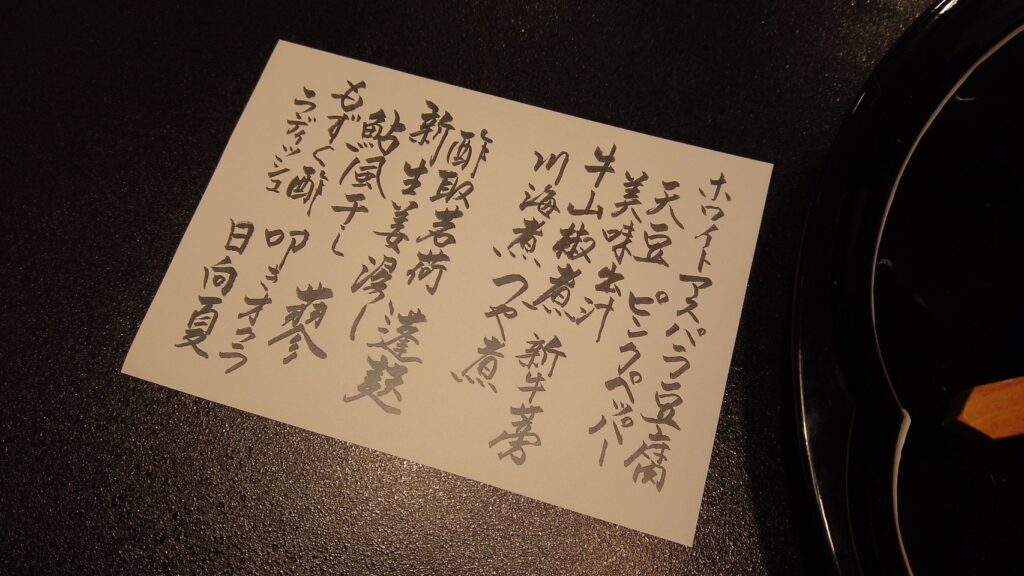 ホワイトアスパラ豆腐
天豆 ピンクペッパー
美味出汁
牛山椒煮 新牛蒡
川海老つや煮
酢取茗荷 蓬麩
新生姜浸し
鮎風干し 蓼
もずく酢 叩きオクラ
ラディッシュ 日向夏